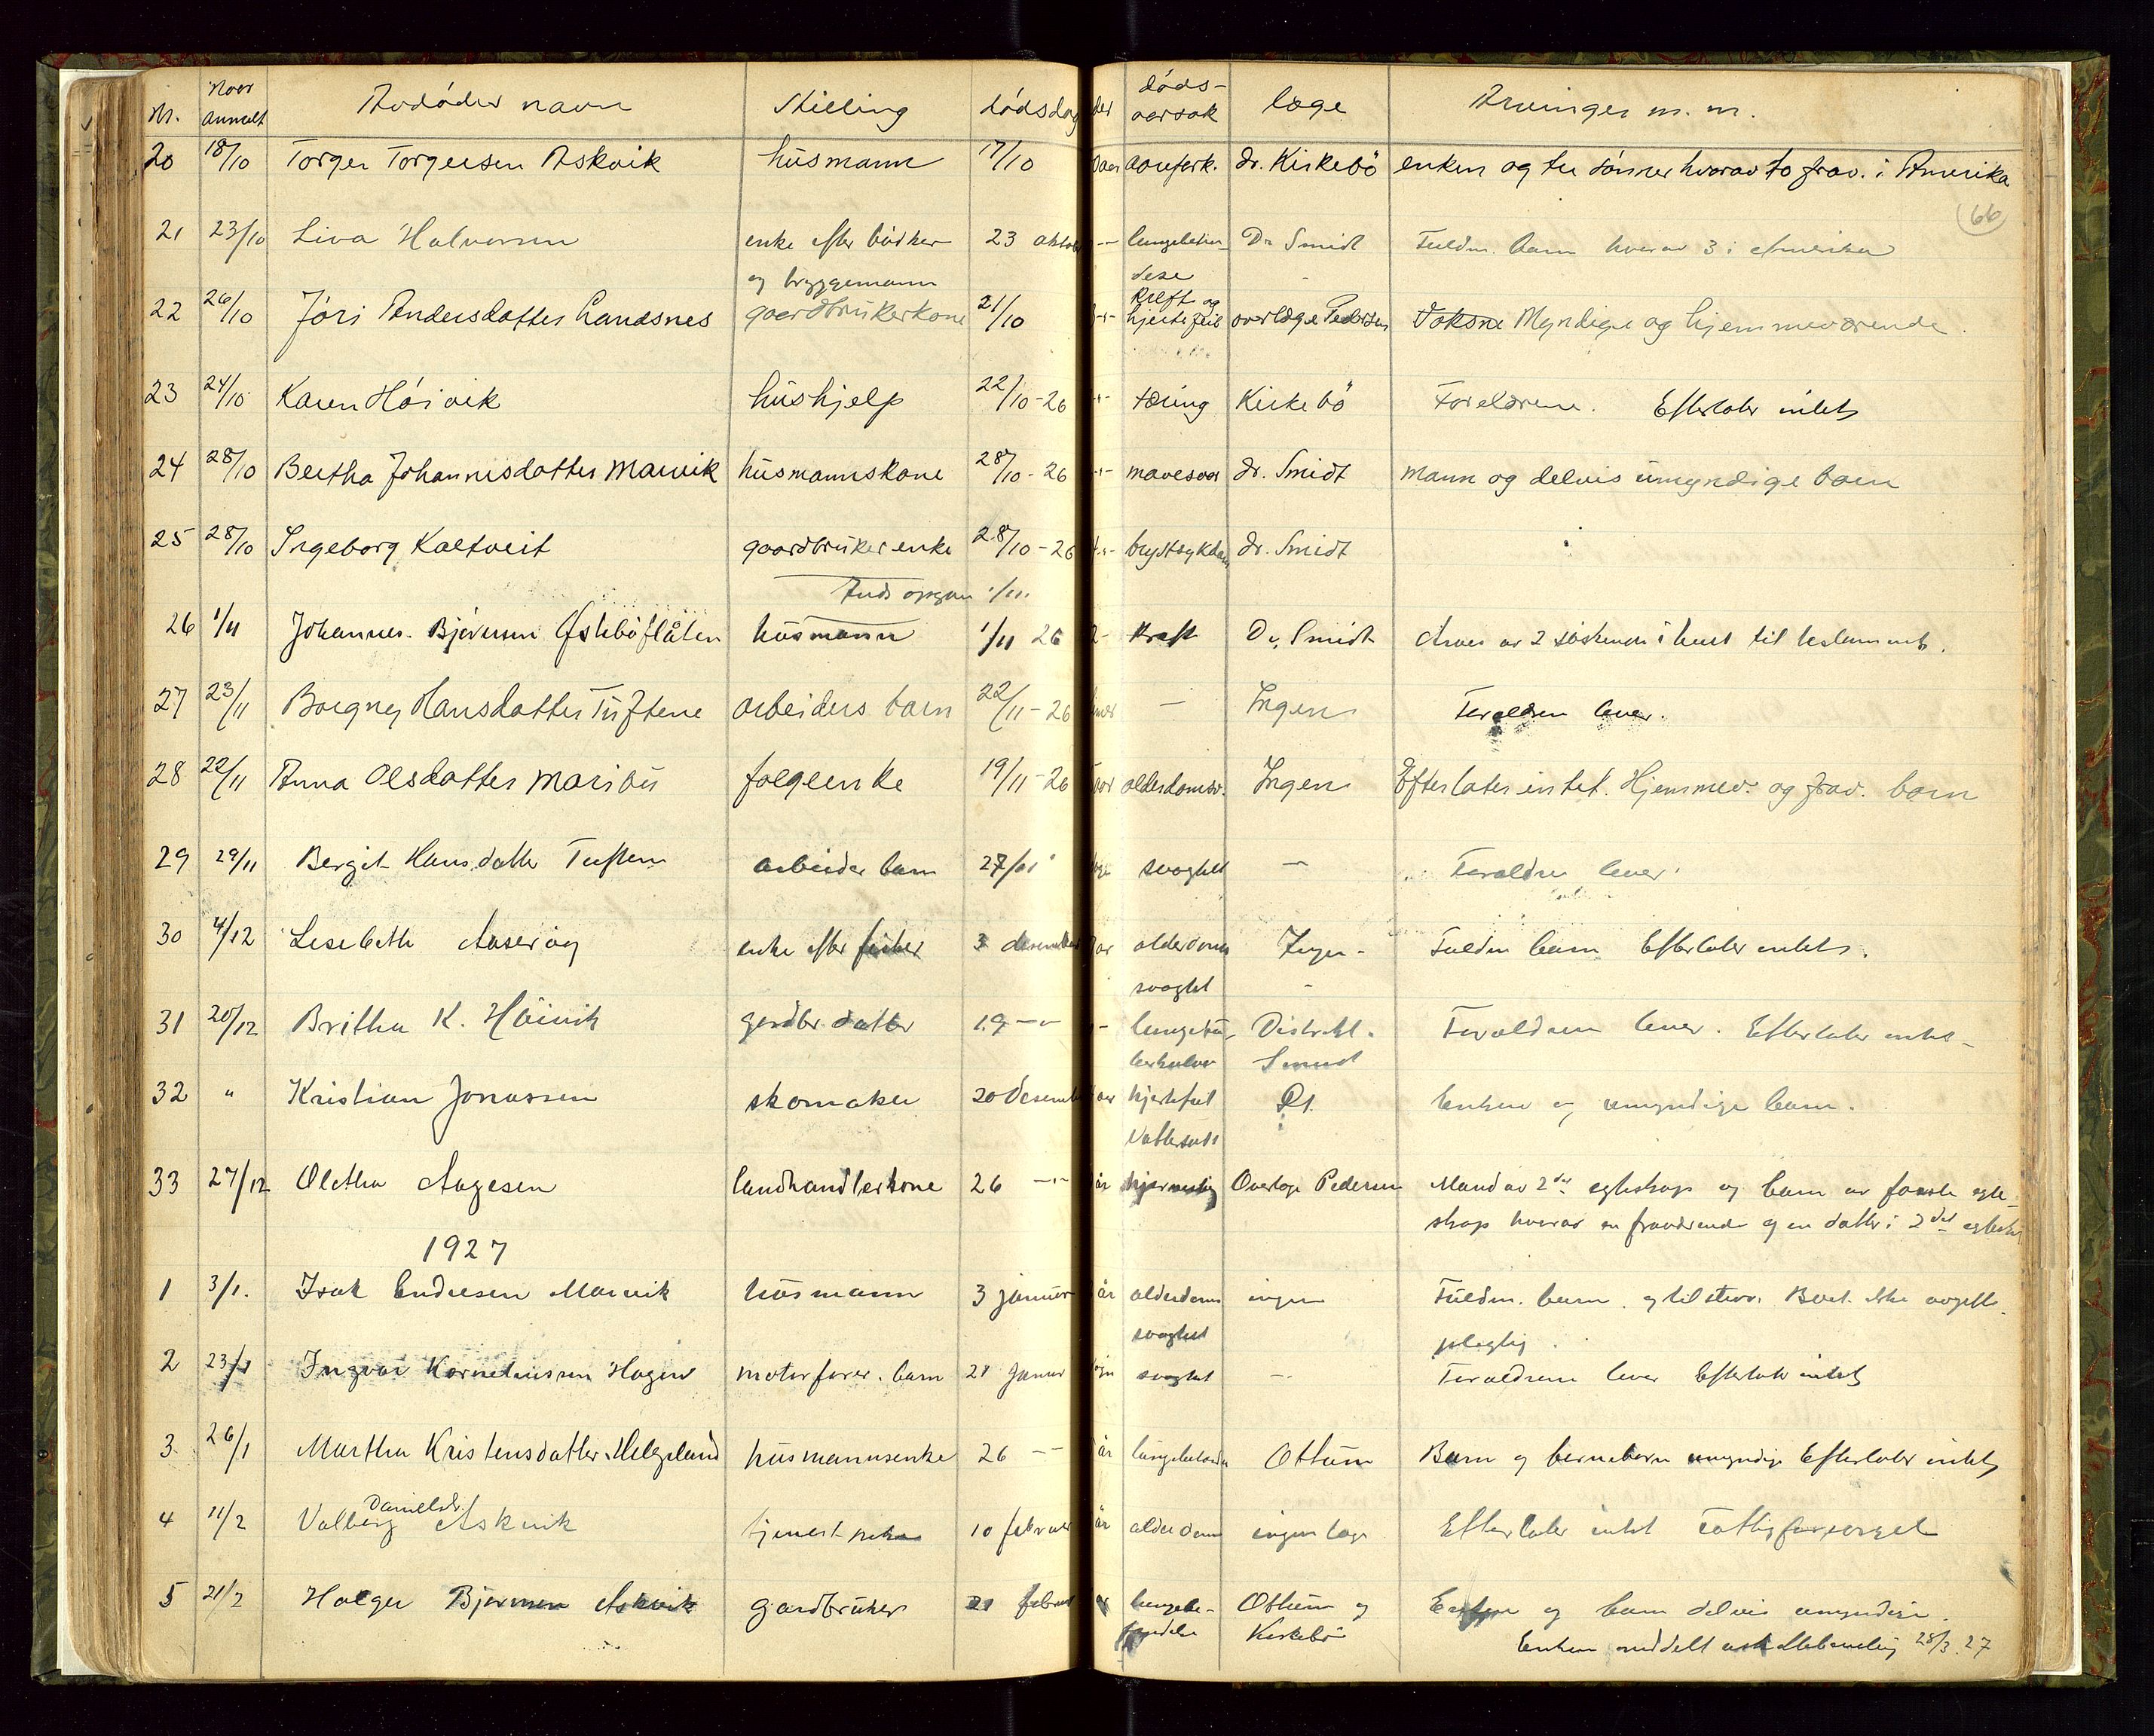 Nr. Naar anmelt Avdødes navn Stilling dødsdag døds-aarsak læge Arvinger m. m.
20 18/10 Torger Torgersen Askvik husmann 17/10 dr. Kirkebö enken og tre sönner hvorav to frav. i Amerika
66
21 23/10 Liva Halvorsen enke efter bödker 23 oktober lungebeten- Dr Smidt Fuldm. barn hvorav 3 i Amerika
og bryggemann delse
22 26/10 Jöri Andersdatter Landsnes gaardbrukerkone 21/10 kreft og hjertefeil overlæge Pedersen Voksne Myndige og hjemmeværende.
23 24/10 Karen Höivik hushjelp 22/10-26 tæring Kirkebö Foreldrene. Efterlater intet
24 28/10 Bertha Johannesdatter Marvik husmannskone 28/10-26 mavesaar dr. Smidt mann og delvis umyndige barn
25 28/10 Ingeborg Kaltveit gaardbrukerenke 28/10-26 brystsykdom dr. Smidt
1/11
26 1/11 Johannes Bjørnsen Østeböflåten husmann 1/11 26 kreft Dr. Smidt Arves av 2 söskend i hent til testament.
27 23/11 Borgny Hansdatter Tuftene arbeiders barn 22/11-26 — Ingen Foreldrene lever.
28 22/11 Anna Olsdatter Maribu folgeenke 19/11-26 alderdomsv. Ingen Efterlater intet. Hjemmev. og frav. barn
29 29/11 Bergit Hansdatter Tuften arbeider barn 27/11 svaghet — Foreldre lever.
30 4/12 Lisebeth enke efter fisker 3 desember alderdoms Ingen - Fuldm barn Efterlater intet.
svaghet
31 20/12 Britha K. Höivik gardbr. datter 19 — lungetu- Distrikt. Foreldrene lever. Efterlater intet -
berkulose Smidt
32 " Kristian Jonassen skomaker 20 desember hjertefeil Enken og umyndige barn.
Vattersott
33 27/12 Oletha Aagesen landhandlerkone 26 — Overlæge Pedersen Mand av 2det egteskap og barn av første egte-
skap hvorav en fraværende og en datter i 2det egtesk
1927
1 3/1. Isak Endresen Marvik husmann 3 januar år alderdoms ingen Fuldm. barn. og tilstede. Boet ikke avgifts-
svaghet pligtig.
2 23/1 Ingvar Korneliussen Hagen motorfører. barn 21 januar svaghet — Foreldrene lever Efterlater intet
3 26/1 Martha Kristensdatter Helgeland husmannsenke 26 — år lungebetændelse Ottum Barn og barnebarn umyndige Efterlater intet
Danielsdr.
4 11/2 Valborg Askvik tjenestpike 10 februar år alderdom ingen læge Efterlater intet Fattigforsorgel
5 21/2 Holger Björnsen Askvik gardbruker 21 februar lungebe- Ottum og Enken og barn delvis umyndige.
tendelse Kirkebö Enken meddelt uskiftebevilling 28/3.27